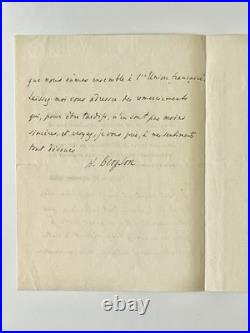 que nous eûmes ensemble à l'Union française,
laissez-moi vous adresser des remerciements
qui, pour être tardifs, n'en sont pas moins
sincères, et croyez, je vous prie, à mes sentiments
tout dévoués
H. Bergson